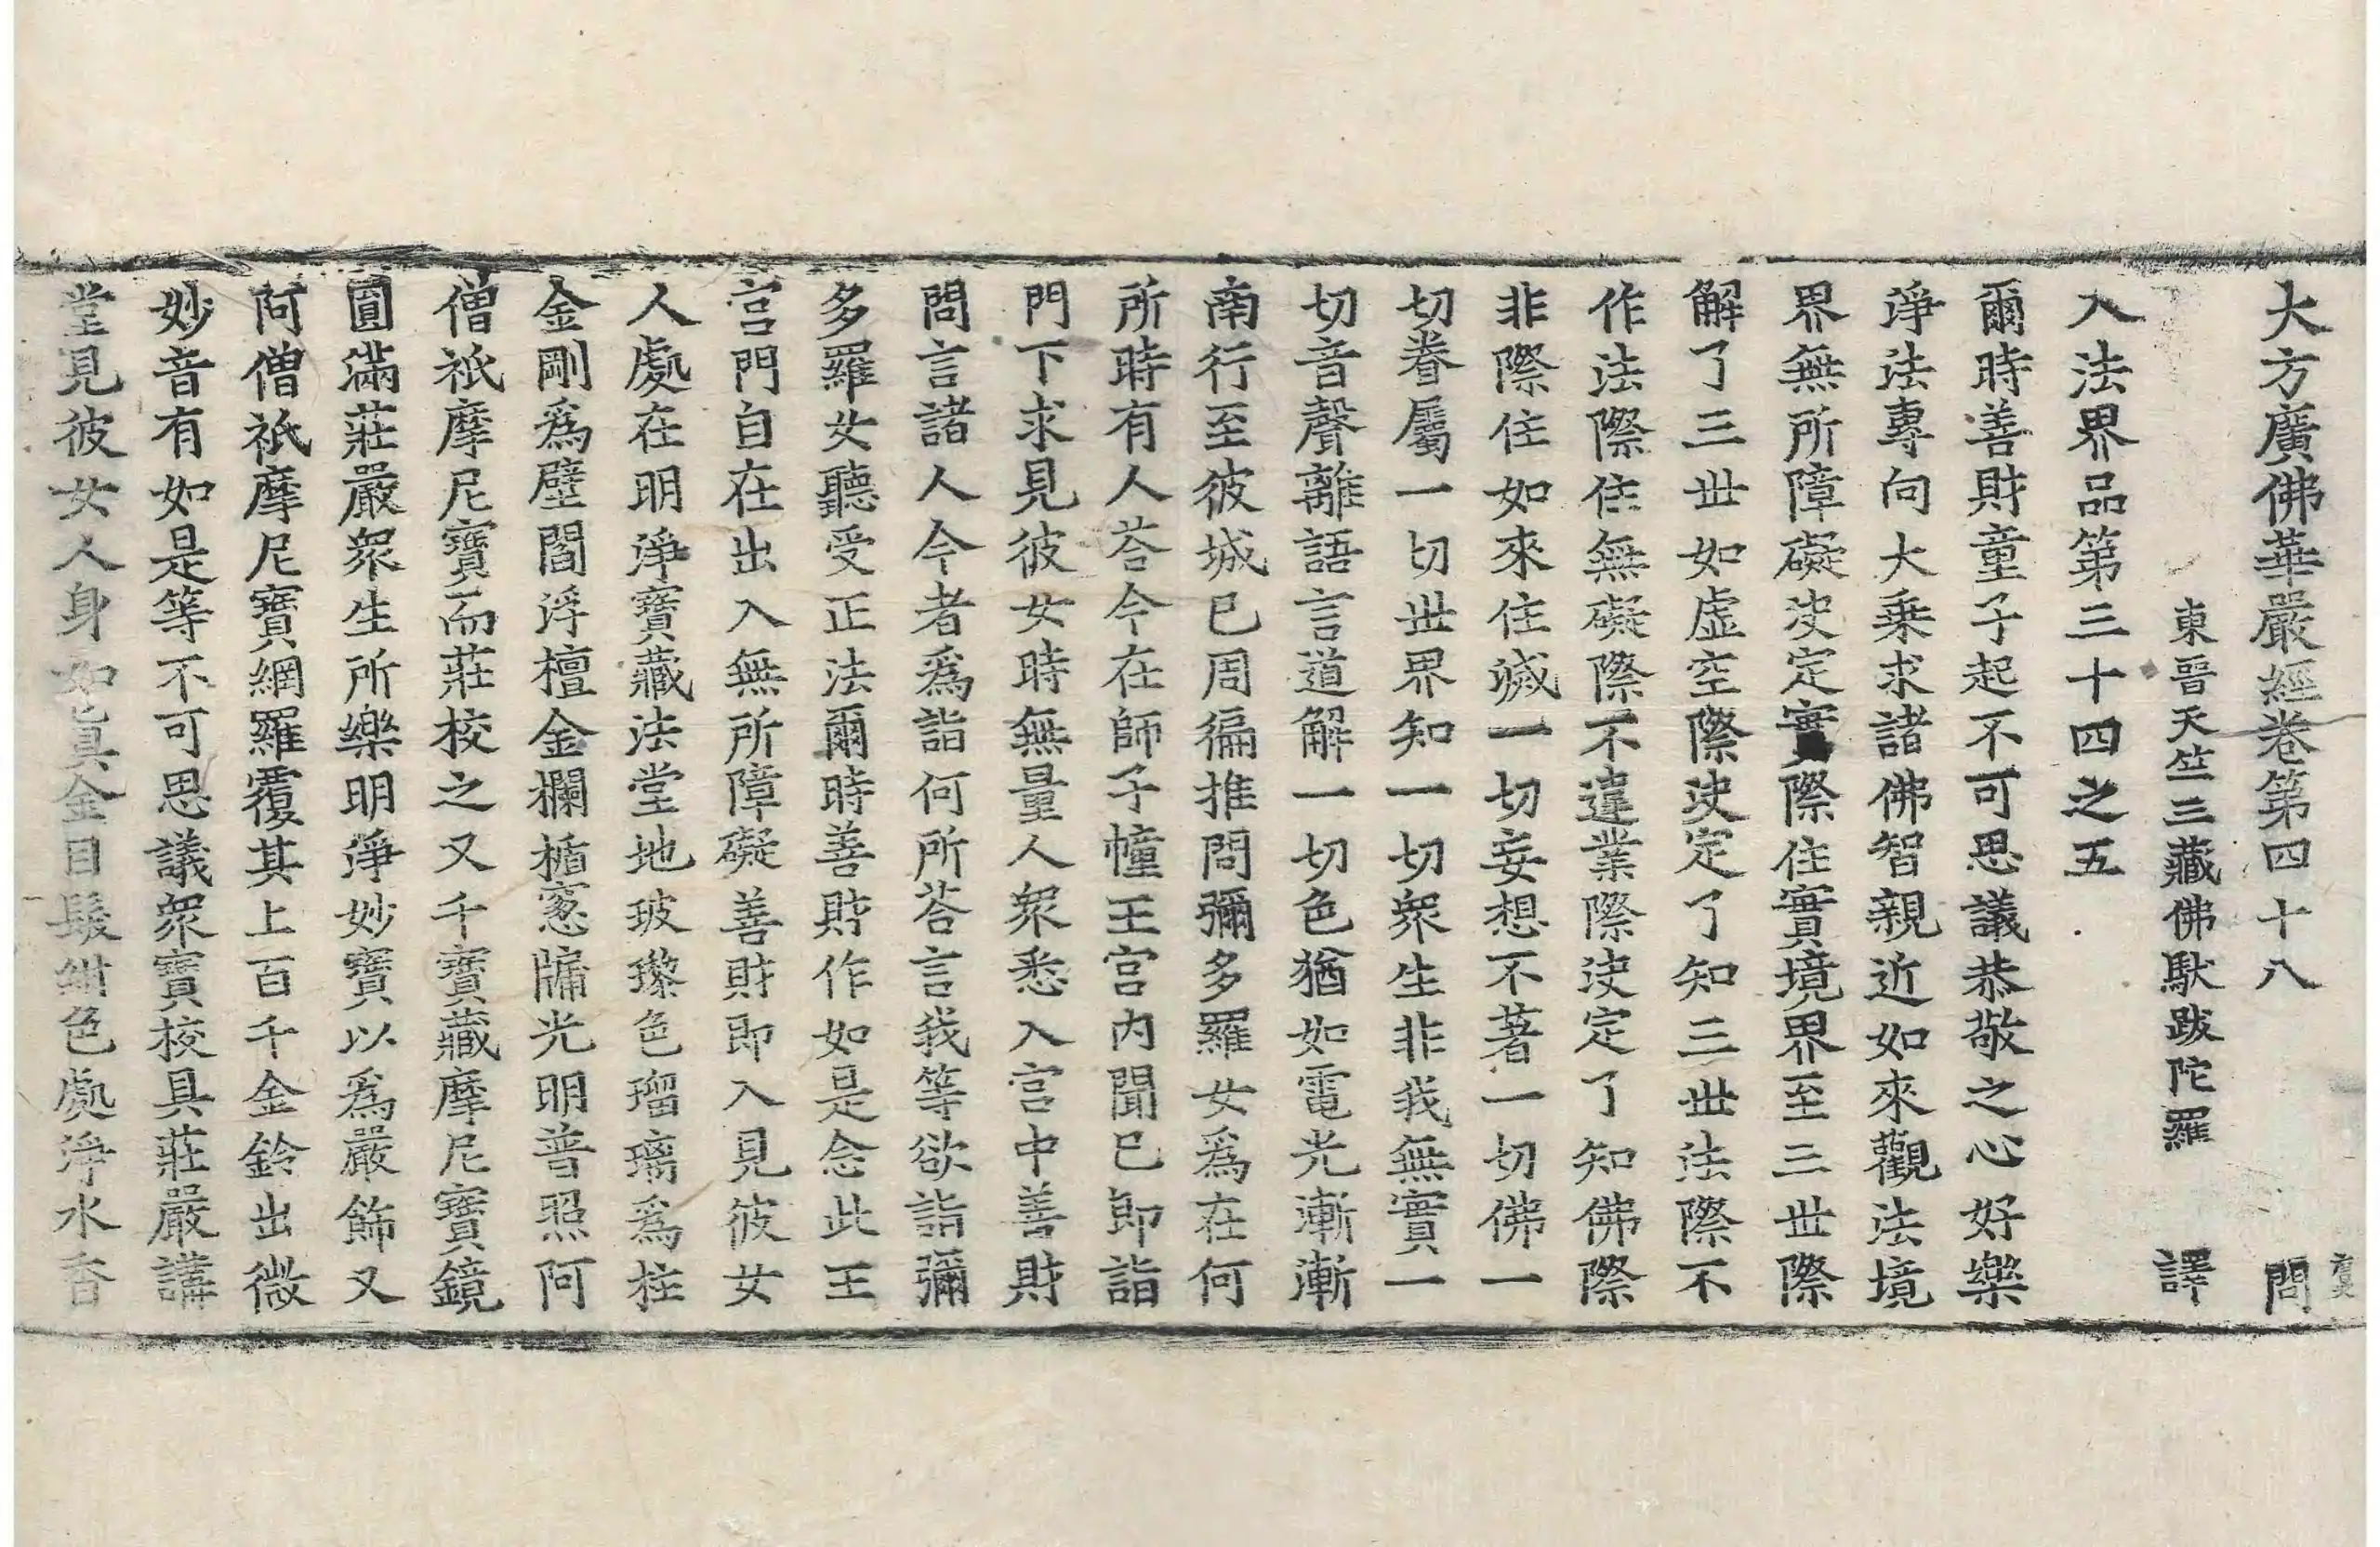 大方廣佛華嚴經卷第四十八 問
東晉天竺三藏佛馱跋陀羅 譯
入法界品第三十四之五
爾時善財童子起不可思議恭敬之心好樂
淨法專向大乗求諸佛智親近如來觀法境
界無所障礙决定實際住實境界至三世際
解了三世如虛空際决定了知三世法際不
作法際住無礙際不違業際决定了知佛際
非際住如來住滅一切妄想不著一切佛一
切眷屬一切世界知一切衆生非我無實一
切音聲離語言道解一切色猶如電光漸漸
南行至彼城已周徧推問彌多羅女爲在何
所時有人荅今在師子幢王宫内聞已即詣
門下求見彼女時無量人衆悉入宫中善財
問言諸人今者爲詣何所荅言我等欲詣彌
多羅女聽受正法爾時善財作如是念此王
宫門自在出入無所障礙善財即入見彼女
人處在明淨寶藏法堂地玻瓈色瑠璃爲柱
金剛爲壁閻浮檀金欄楯窻牖光明普照阿
僧祇摩尼寶而莊校之又千寶藏摩尼寶鏡
圓滿莊嚴衆生所樂明淨妙寶以爲嚴飾又
阿僧祇摩尼寶網羅覆其上百千金鈴出微
妙音有如是等不可思議衆寶校具莊嚴講
堂見彼女人身如真金目髮紺色處淨水香